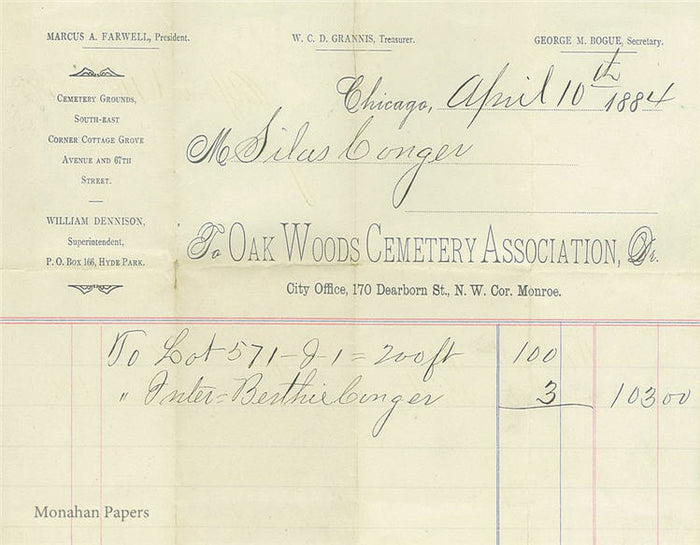 MARCUS A. FARWELL, President.
W. C. D. GRANNIS, Treasurer.
GEORGE M. BOGUE, Secretary.
CEMETERY GROUNDS,
SOUTH-EAST
CORNER COTTAGE GROVE
AVENUE AND 67TH
STREET.
WILLIAM DENNISON,
Superintendent,
P. O. Box 166, HYDE PARK.
Chicago, April 10th 1884
M Silas Conger
To OAK WOODS CEMETERY ASSOCIATION, Dr.
City Office, 170 Dearborn St., N. W. Cor. Monroe.
To Lot 571-J-1 = 200ft 100
" Inter= Berthie Conger 3 103 00
Monahan Papers